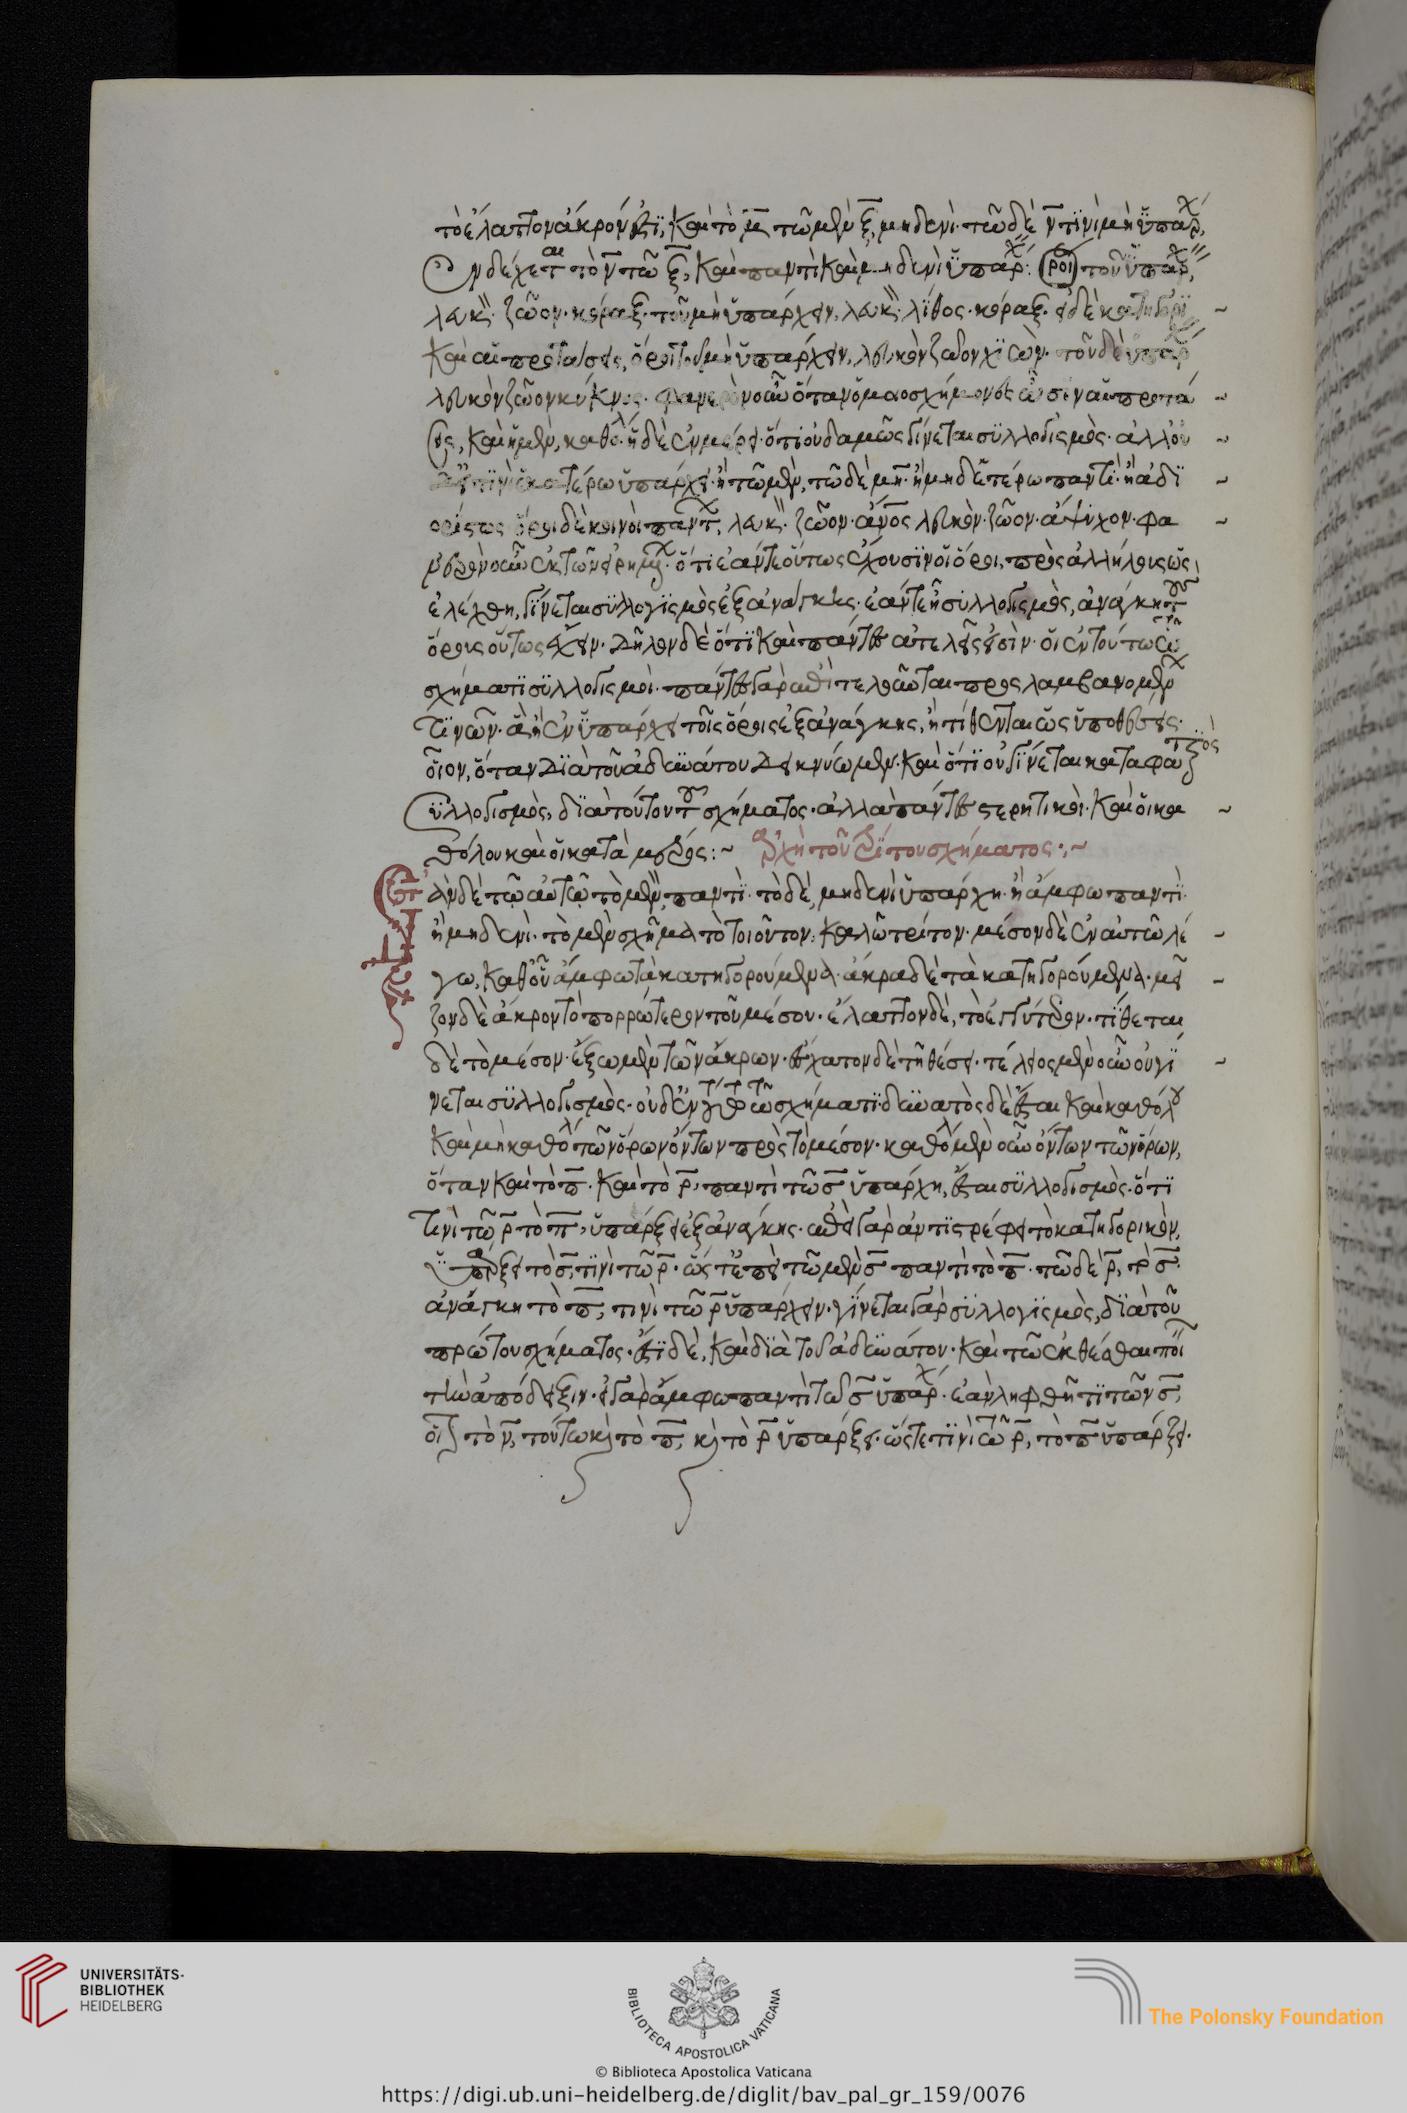 τὸ ἐλαττον ἄκρον ἐστϊ, καὶ τὸ μ̅ τῶ μὲν ξ̅, μηδενὶ· τῶ δὲ ν̅ τϊνὶ μὴ ὑπάρχ
ἐνδέχεται τὸ ν̅ τῶ ξ̅, καὶ παντὶ καὶ μηδενὶ ὑπάρχ: ὅροι τοῦ ὑπάρχ,
λευκ· ζῶον· κόραξ· τοῦ μὴ ὑπάρχειν, λευκ· λίθος· κόραξ· εἰ δὲ κατηγορϊ
καὶ αἱ προτάσεις, ὅροι τοῦ μὴ ὑπάρχειν, λευκὸν ζῶον χϊών· τοῦ δὲ ὑπάρ
λευκὸν ζῶον κύκνος· φανερὸν οὖν ὅταν ὁμαοσχήμονες ὦσϊν αἱ προτά
σεις, καὶ ἡ μὲν, καθόλ· ἡ δὲ ἐν μέρει· ὅτϊ οὐδαμῶς γίνεται συλλογισμὸς· ἀλλ' οὐ
δ' εἴ τϊνὶ ἑκατέρω ὑπάρχει· ἢ τῶ μὲν, τῶ δὲ μὴ· ἢ μηδετέρω παντὶ· ἢ ἀδϊ
ορίστως ὅροι δὲ κοινοὶ πάντ, λευκ· ζῶον· ἄν̅ος λευκὸν· ζῶον· ἄψυχον· φα
νερὸν οὖν ἐκ τῶν εἰρημ· ὅτϊ ἐάν τε οὕτως ἔχουσϊν οἱ ὅροι, πρὸς ἀλλήλους ὡς
ἐλέχθη, γίνεται συλλογϊσμὸς ἐξ ἀνάγκης· ἐάν τε ἦ συλλογισμὸς, ἀνάγκη τοὺ
ὅρους οὕτως ἔχειν· Δῆλον δὲ ὅτϊ καὶ πάντες ἀτελεῖς εἰσὶν· οἱ ἐν τούτω τῶ
σχήματϊ συλλογισμοὶ· πάντες γὰρ ἐπιτελοῦνται προσλαμβανομέν
τϊνῶν· ἃ ἢ ἐνϋπάρχει τοῖς ὅροις ἐξ ἀνάγκης, ἢ τίθενται ὡς ὑποθέσεις·
οἷον, ὅταν Δϊὰ τοῦ ἀδυνάτου Δεικνύωμεν· καὶ ὅτϊ οὐ γϊνεται καταφατϊκὸς
συλλογισμὸς, δϊὰ τούτου τοῦ σχήματος· ἀλλὰ πάντες στερητικοὶ· καὶ οἱ κα
θόλου καὶ οἱ κατὰ μέρος:~ ἀρχὴ τοῦ τρϊτου σχήματος·:~
Ἐὰν δὲ τῶ αὐτῶ τὸ μὲν, παντὶ· τὸ δὲ, μηδενὶ ὑπάρχη· ἢ ἄμφω παντὶ·
ἢ μηδενὶ· τὸ μὲν σχῆμα τὸ τοιοῦτον, καλῶ τρίτον· μέσον δὲ ἐν αὐτῶ λέ
γω, καθ' οὗ ἄμφω τὰ κατηγορούμενα· ἄκρα δὲ τὰ κατηγορούμενα· μεῖ
ζον δὲ ἄκρον τὸ πορρώτερον τοῦ μέσου· ἔλαττον δὲ, τὸ ἐγγύτερον· τίθεται
δὲ τὸ μέσον· ἔξω μὲν τῶν ἄκρων· ἔσχατον δὲ τῆ θέσει· τέλειος μὲν οὖν οὐ γϊ
νεται συλλογισμὸς· οὐδὲ ἐν τούτω τῶ σχήματϊ· δυνατὸς δὲ ἔσται καὶ καθόλου
καὶ μὴ καθόλ τῶν ὅρων ὄντων πρὸς τὸ μέσον· καθόλ μὲν οὖν ὄντων τῶν ὅρων,
ὅταν καὶ τὸ π̅· καὶ τὸ ρ̅, παντὶ τῶ σ̅ ὑπάρχη, ἔσται συλλογισμὸς· ὅτϊ
τινὶ τῶ ρ̅ τὸ π̅, ὑπάρξει ἐξ ἀνάγκης· ἐπεὶ γὰρ ἀντϊστρέφει τὸ κατηγορικὸν,
ὑπάρξει τὸ σ̅, τϊνὶ τῶ ρ̅· ὥστ' ἐπεὶ τῶ μὲν σ̅ παντὶ τὸ π̅· τῶ δὲ ρ̅, τὸ σ̅
ἀνάγκη τὸ π̅, τινὶ τῶ ρ̅ ὑπάρχειν· γίνεται γὰρ συλλογϊσμὸς, δϊὰ τοῦ
πρώτου σχήματος· ἔστϊ δὲ, καὶ δϊὰ τοῦ ἀδυνάτου· καὶ τῶ ἐκθέσθαι ποϊ
τὴν ἀπόδειξιν· εἰ γὰρ ἄμφω παντὶ τῶ σ̅ ὑπάρχ· ἐὰν ληφθῆ τϊ τῶν σ̅,
οἷ τὸ ν̅, τούτω κ τὸ π̅, κ τὸ ρ̅ ὑπάρξει· ὥστε τϊνὶ τῶ ρ̅, τὸ π̅ ὑπάρξει·
UNIVERSITÄTS-
BIBLIOTHEK
HEIDELBERG
BIBLIOTECA APOSTOLICA VATICANA
The Polonsky Foundation
© Biblioteca Apostolica Vaticana
https://digi.ub.uni-heidelberg.de/diglit/bav_pal_gr_159/0076